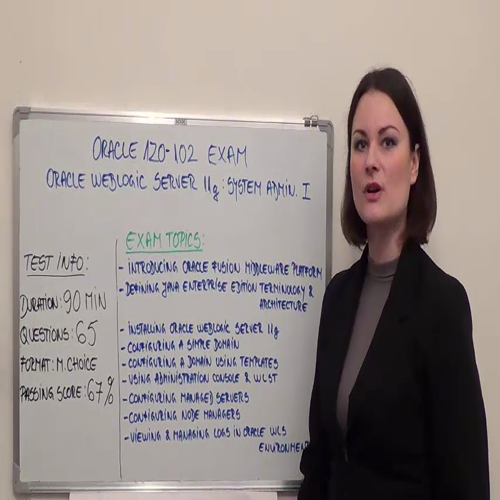 ORACLE 1Z0-102 EXAM
ORACLE WEBLOGIC SERVER 11g: SYSTEM ADMIN. I
TEST INFO:
DURATION: 90 MIN
QUESTIONS: 65
FORMAT: M.CHOICE
PASSING SCORE: 67%
EXAM TOPICS:
- INTRODUCING ORACLE FUSION MIDDLEWARE PLATFORM
- DEFINING JAVA ENTERPRISE EDITION TERMINOLOGY &
ARCHITECTURE
- INSTALLING ORACLE WEBLOGIC SERVER 11g
- CONFIGURING A SIMPLE DOMAIN
- CONFIGURING A DOMAIN USING TEMPLATES
- USING ADMINISTRATION CONSOLE & WLST
- CONFIGURING MANAGED SERVERS
- CONFIGURING NODE MANAGERS
- VIEWING & MANAGING LOGS IN ORACLE WLS
ENVIRONMENT